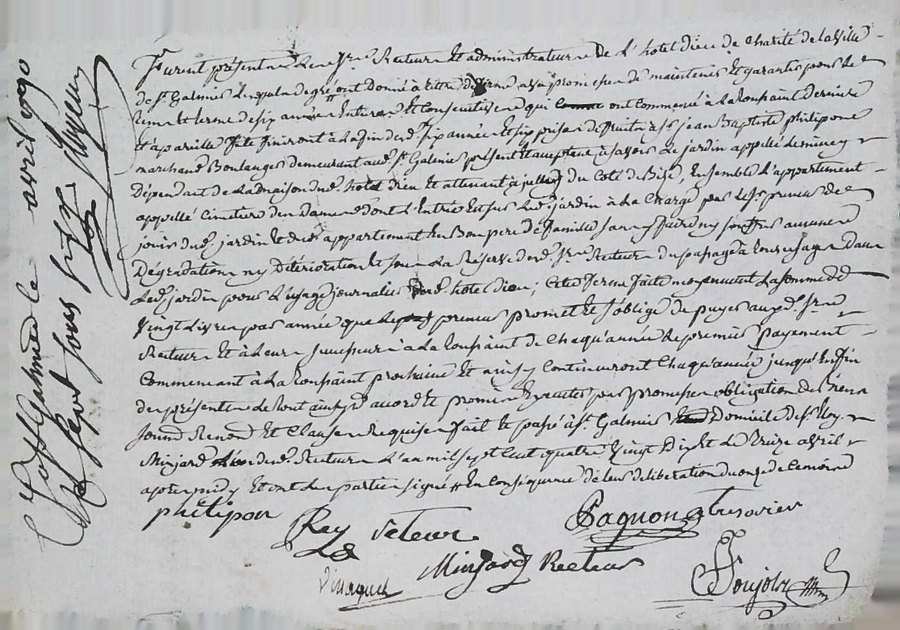 Furent présents Les Srs Recteurs et administrateurs de L'hotel dieu de charité de la ville
de St. Galmier Lesquels de gré ont donné à titre de ferme avec promesse de maintenir et garantir pour le
tems et terme de six années Entieres et Consecutives qui ont commencé à La toussaint Derniere
et à pareille fete finiront à La fin des d. six années et six prises de fruits à Sr jean Baptiste philipon
marchand Boulanger demeurant aud. St. Galmier présent et acceptant, à savoir Le jardin appellé
Dépendant de La maison dud. hotel dieu et attenant à du Coté de Bize, Ensemble L'appartement
appellé Cimetiere des Dames dont L'Entrée Est sur Led. jardin à La Charge par Led. Sr. preneur de
jouir dud. jardin et dud. appartement En Bon pere de famille sans y faire ny souffrir aucune
Dégradation ny Déterioration et sous La Réserve desd. Srs Recteurs du passage à tous usages Dans
Led. jardin pour L'usage journalier dud. hotel dieu; Cette ferme faite moyennant La somme de
Vingt Livres par année que Le preneur promet et s'oblige de payer auxd. Srs
Recteurs et à Leurs successeurs à La toussaint de Chaqu'année Le premier payement
Commencant à La toussaint prochaine et ainsy Continueront Chaqu'année jusqu'En fin
des présentes de tout ainsy accord et promis Executer par promesses obligation de biens
soumis. Renon. et Clauses Requises fait et passé à St. Galmier Domicile de Sr. Rey
Minjard desd. Recteurs L'an mil sept Cent quatre Vingt Dix et Le treize avril
après midy Et ont Les parties signé En Conséquence de Leur deliberation du onze de Ce mois
philipon
Rey Recteur
Pagnon Tresorier
Minjard Recteur
Poujols
St Galmier le avril 1790